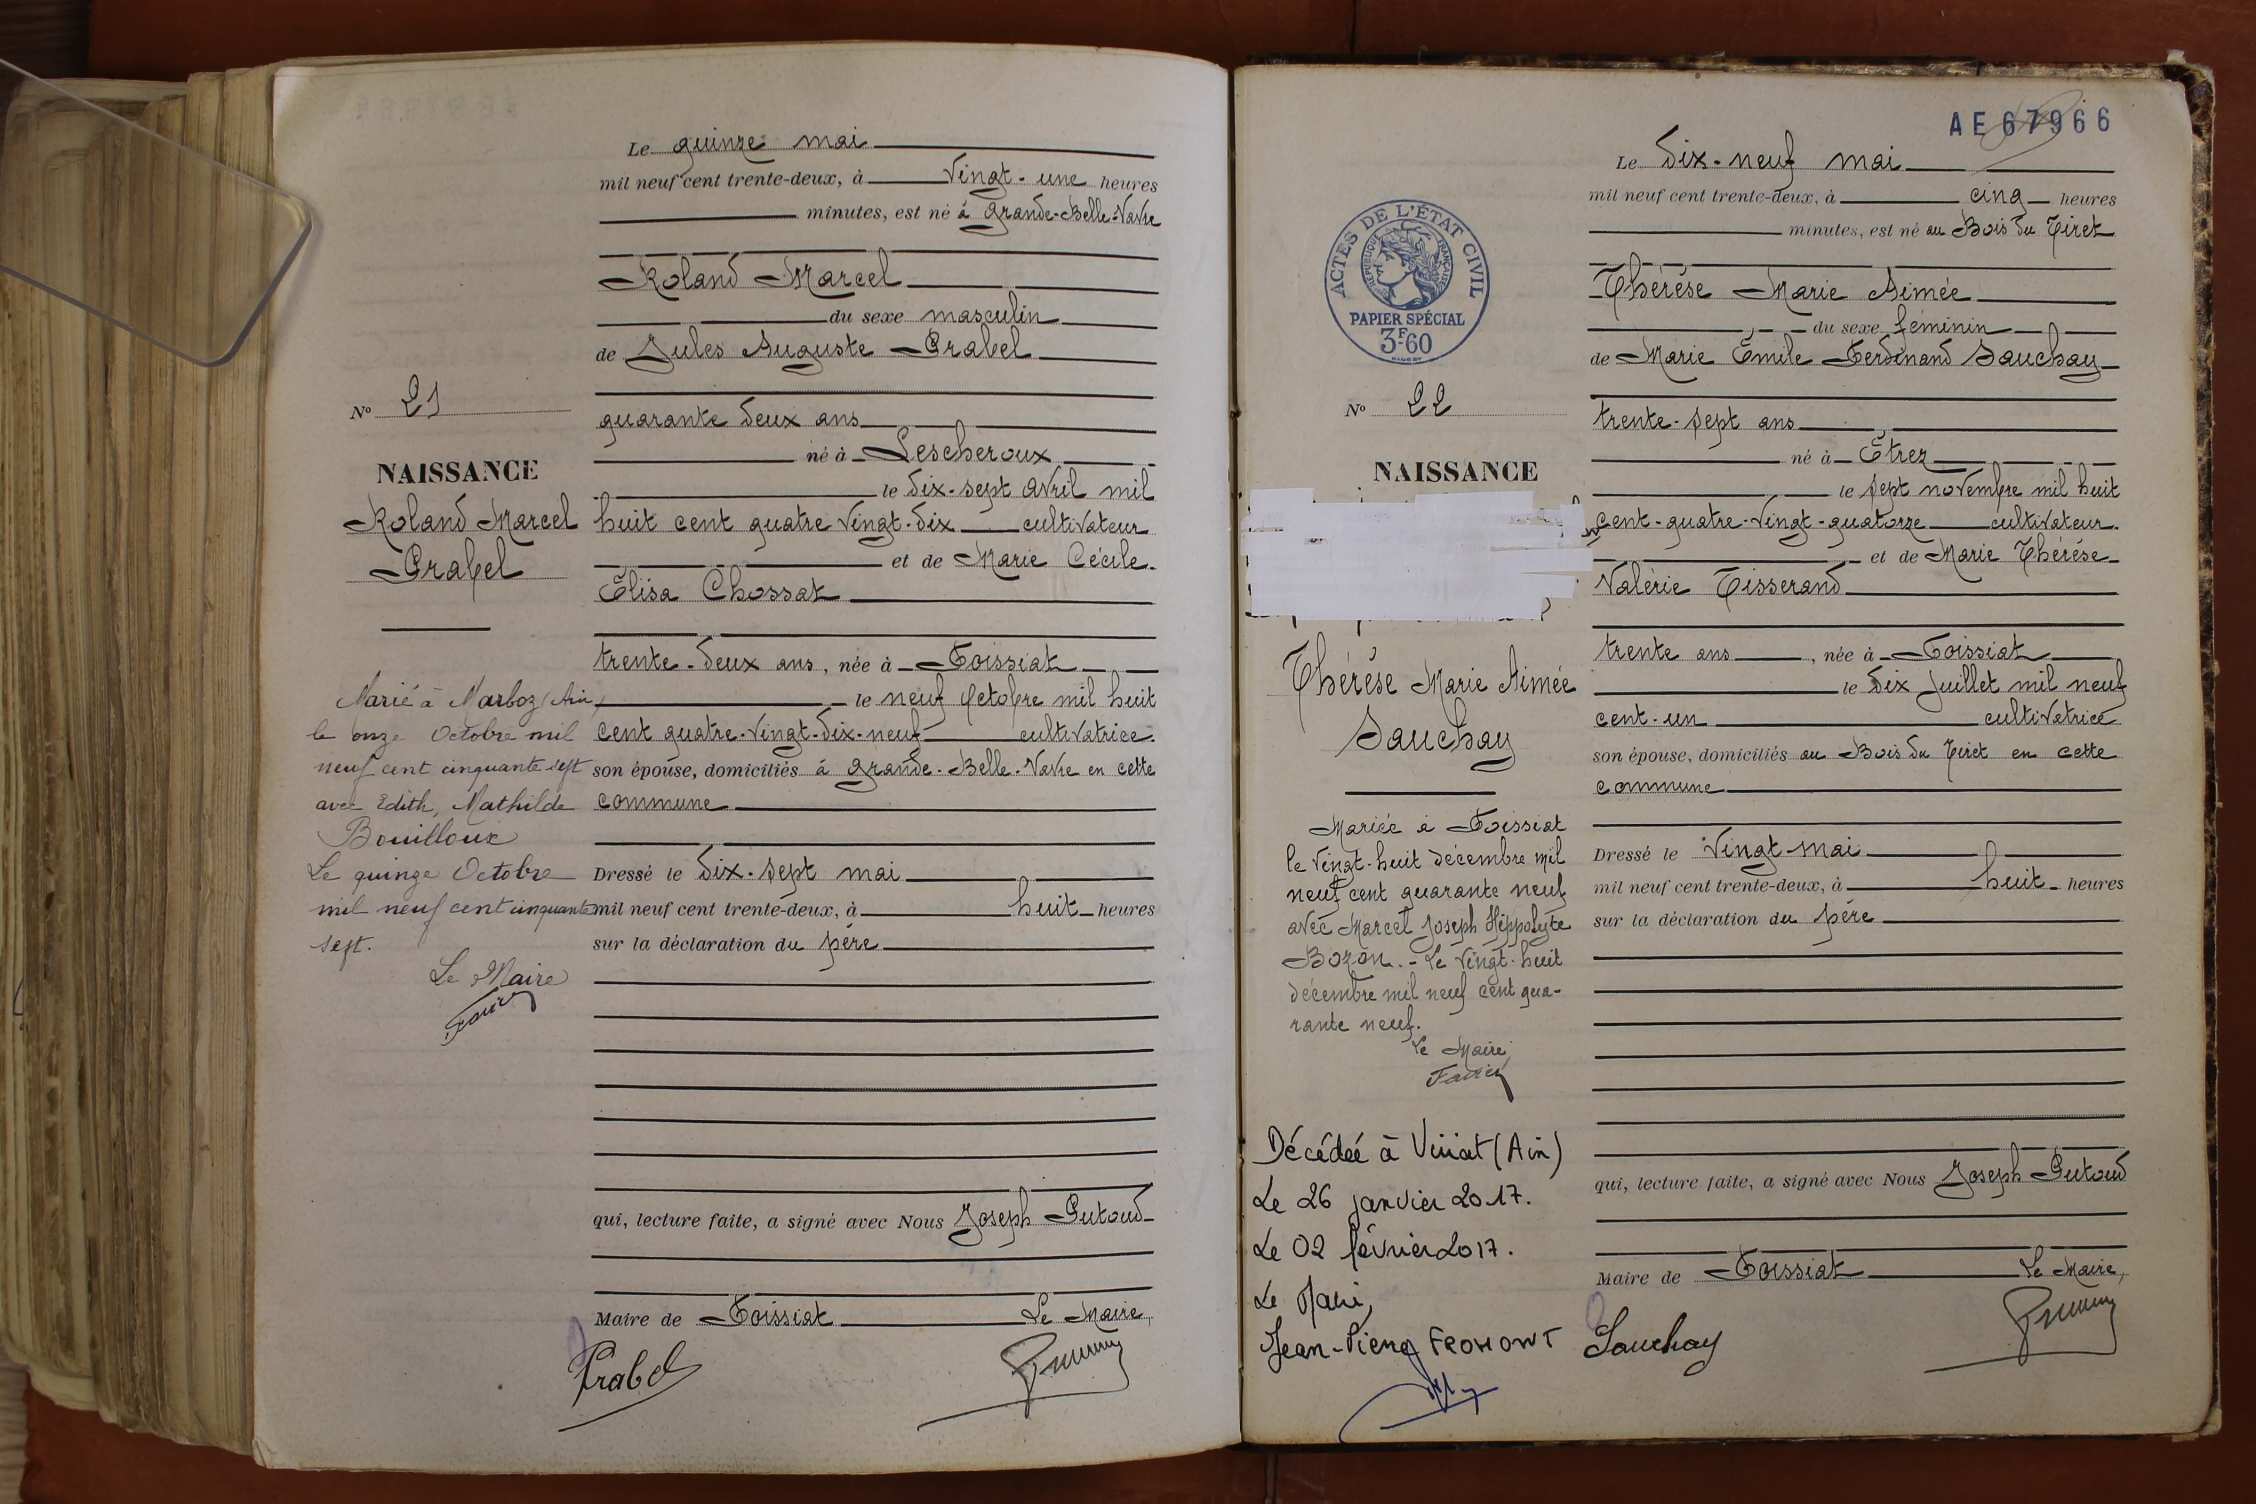 Le quinze mai
mil neuf cent trente-deux, à vingt-une heures
minutes, est né à Grande-Belle-Vavre
Roland Marcel
du sexe masculin
de Jules Auguste Prabel
N° 21
quarante deux ans
né à Lescheroux
NAISSANCE
le dix-sept avril mil
Roland Marcel
huit cent quatre vingt-dix cultivateur
Prabel
et de Marie Cécile
Elisa Chossat
trente-deux ans, née à Foissiat
Marié à Marboz (Ain)
le neuf octobre mil huit
le onze Octobre mil
cent quatre-vingt-dix-neuf cultivatrice
neuf cent cinquante sept
son épouse, domiciliés à Grande-Belle-Vavre en cette
avec Edith, Mathilde
commune
Bouilloux
Le quinze Octobre
Dressé le dix-sept mai
mil neuf cent cinquante
mil neuf cent trente-deux, à huit heures
sept.
sur la déclaration du père
Le Maire
qui, lecture faite, a signé avec Nous Joseph Putoud
Maire de Foissiat Le Maire,
Prabel
AE67966
Le dix-neuf mai
mil neuf cent trente-deux, à cinq heures
minutes, est né au Bois du Tiret
ACTES DE L'ÉTAT CIVIL
RÉPUBLIQUE FRANÇAISE
PAPIER SPÉCIAL
3F60
Thérèse Marie Aimée
du sexe féminin
de Marie Émile Ferdinand Sauchay
N° 22
trente-sept ans
né à Étrez
NAISSANCE
le sept novembre mil huit
cent-quatre-vingt-quatorze cultivateur
et de Marie Thérèse
Valérie Tisserand
trente ans, née à Foissiat
Thérèse Marie Aimée
le dix juillet mil neuf
cent-un cultivatrice
Sauchay
son épouse, domiciliés au Bois du Tiret en cette
commune
Mariée à Foissiat
le vingt-huit décembre mil
Dressé le vingt mai
neuf cent quarante neuf
mil neuf cent trente-deux, à huit heures
avec Marcel Joseph Hippolyte
sur la déclaration du père
Bozon.- Le vingt-huit
décembre mil neuf cent qua-
rante neuf.
Le Maire,
Décédée à Viriat (Ain)
Le 26 janvier 2017.
qui, lecture faite, a signé avec Nous Joseph Putoud
Le 02 février 2017.
Maire de Foissiat Le Maire,
Le Maire,
Jean-Pierre FROMONT
Sauchay